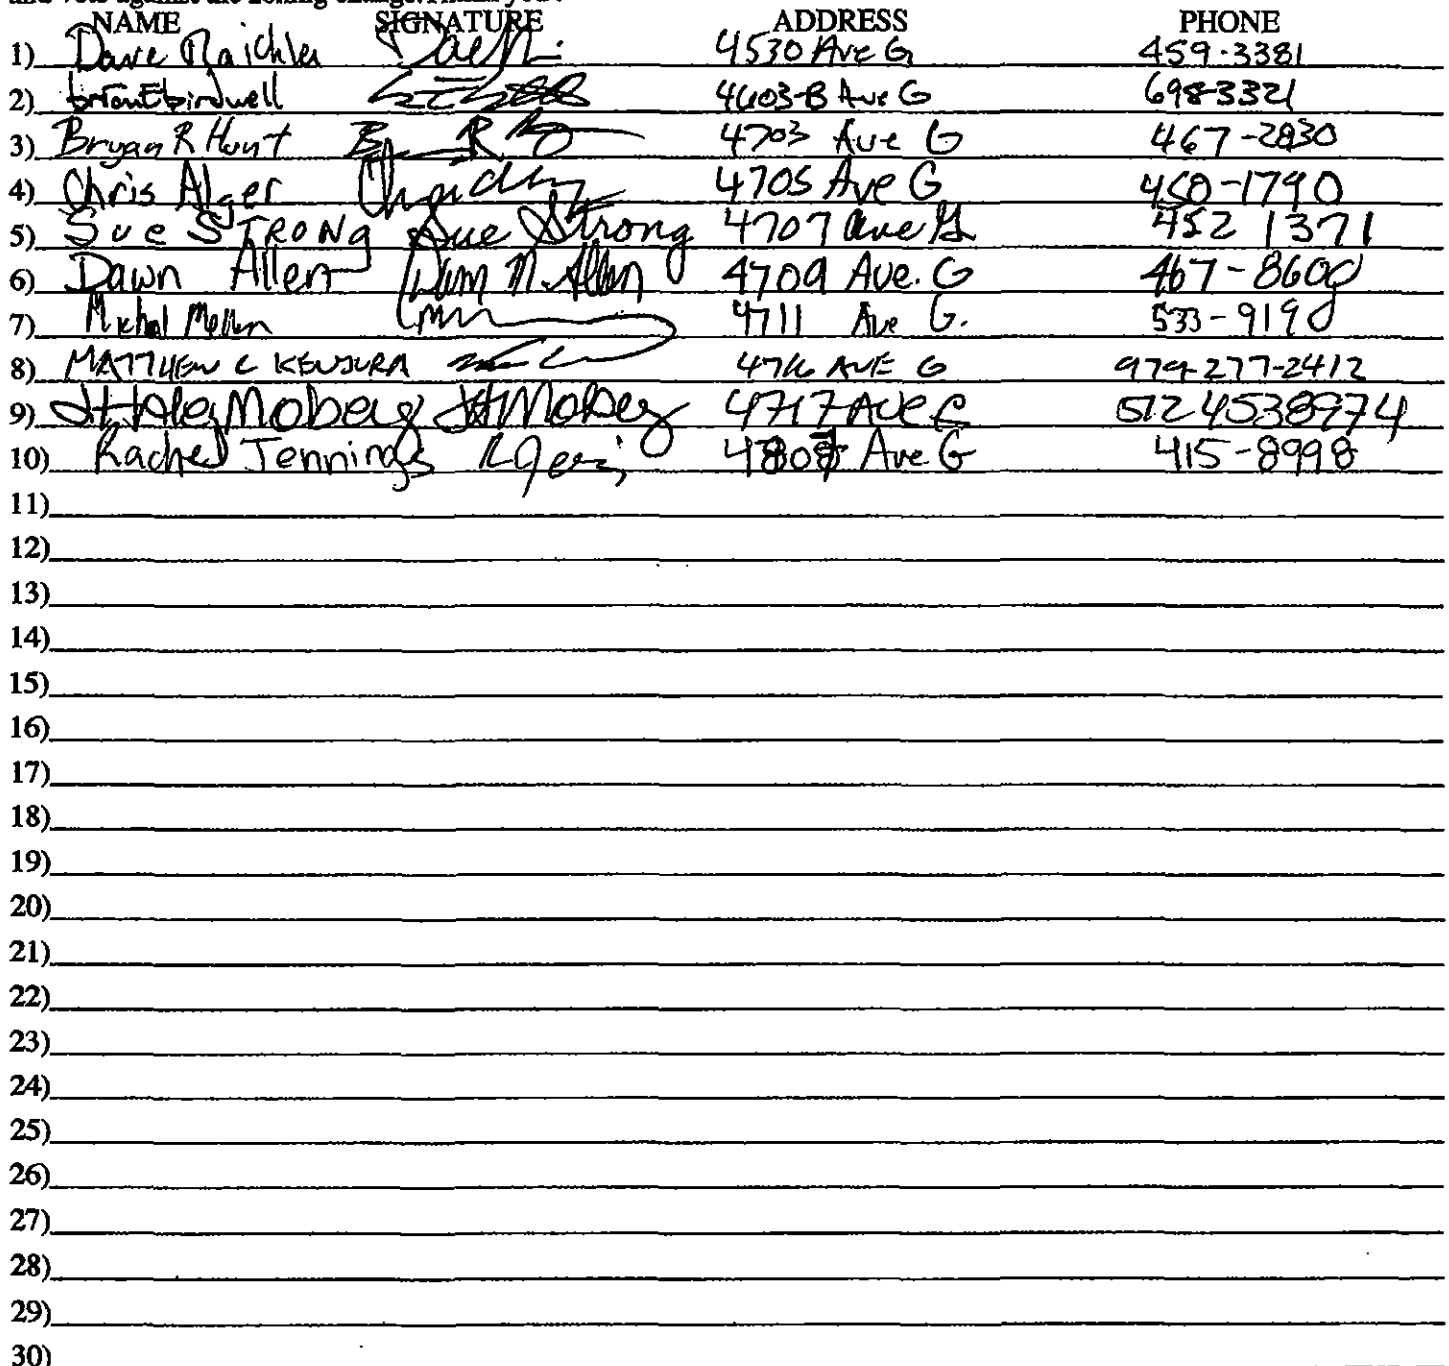 and vote against the zoning change. Thank you.
NAME SIGNATURE ADDRESS PHONE
1) Dave Raichler 4530 Ave G 459-3381
2) brian E birdwell 4603-B Ave G 698-3321
3) Bryan R Hunt 4703 Ave G 467-2830
4) Chris Alger 4705 Ave G 450-1790
5) Sue STRONg Sue Strong 4707 Ave G 452 1371
6) Dawn Allen Dawn M. Allen 4709 Ave. G 467-8600
7) Michal 4711 Ave G. 533-9190
8) MATTHEW C KENJURA 4716 AVE G 979-277-2412
9) Moberg Moberg 4717 Ave 512 4538974
10) Rachel Jennings Ave G 415-8998
11)
12)
13)
14)
15)
16)
17)
18)
19)
20)
21)
22)
23)
24)
25)
26)
27)
28)
29)
30)